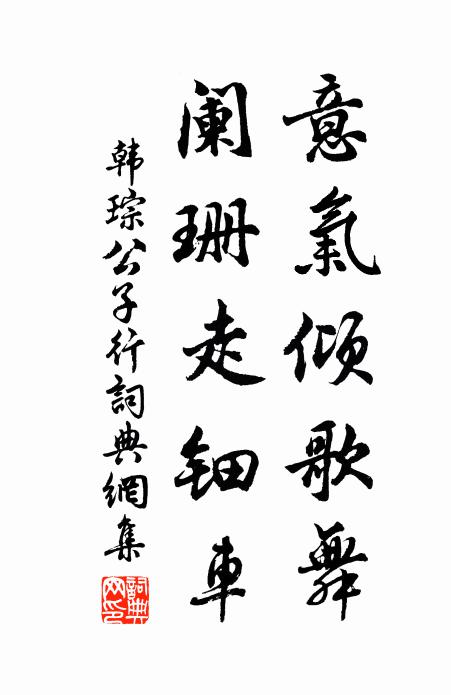 意氣傾歌舞
阑珊走钿車
韩琮公子行詞典網集
詞典網印